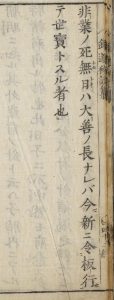 非業ノ死無因ハ大善ノ長ナレバ今新ニ令板行
テ世寶トスル者也